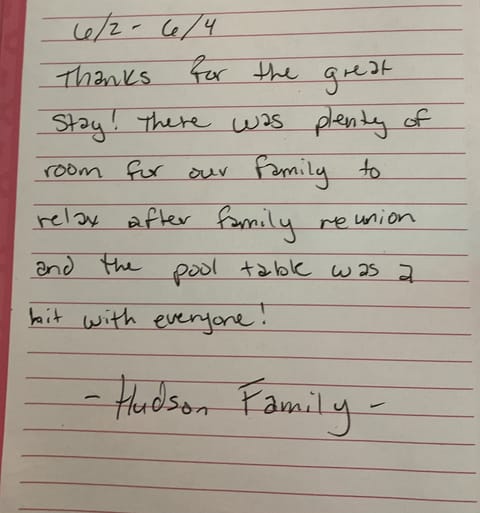 6/2 - 6/4
Thanks for the great
stay! There was plenty of
room for our family to
relax after family reunion
and the pool table was a
hit with everyone!
- Hudson Family -